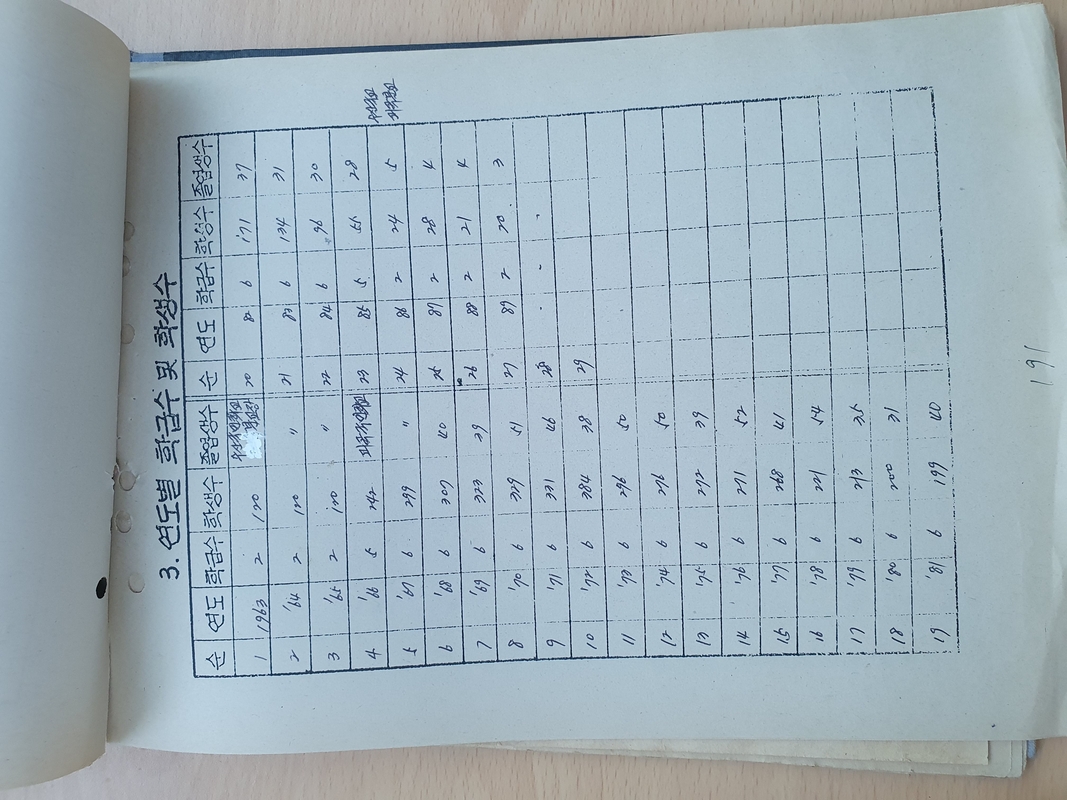 3. 연도별 학급수 및 학생수
순 연도 학급수 학생수 졸업생수 순 연도 학급수 학생수 졸업생수
1 1963 2 120 20 82 6 171 37
2 '64 2 120 〃 21 83 6 134 31
3 '65 2 120 〃 22 84 6 96 30
4 '66 5 242 23 85 5 55 28
5 '67 6 299 〃 24 86 2 24 5
6 '68 6 309 40 25 87 2 28 4
7 '69 6 323 39 26 88 2 21 4
8 '70 6 339 51 27 89 2 20 3
9 '71 6 331 46 28
10 '72 6 384 38 29
11 '73 6 296 50
12 '74 6 292
13 '75 6 262 39
14 '76 6 271 52
15 '77 6 268 41
16 '78 6 221 54
17 '79 6 213 35
18 '80 6 200 31
19 '81 6 199 40
191